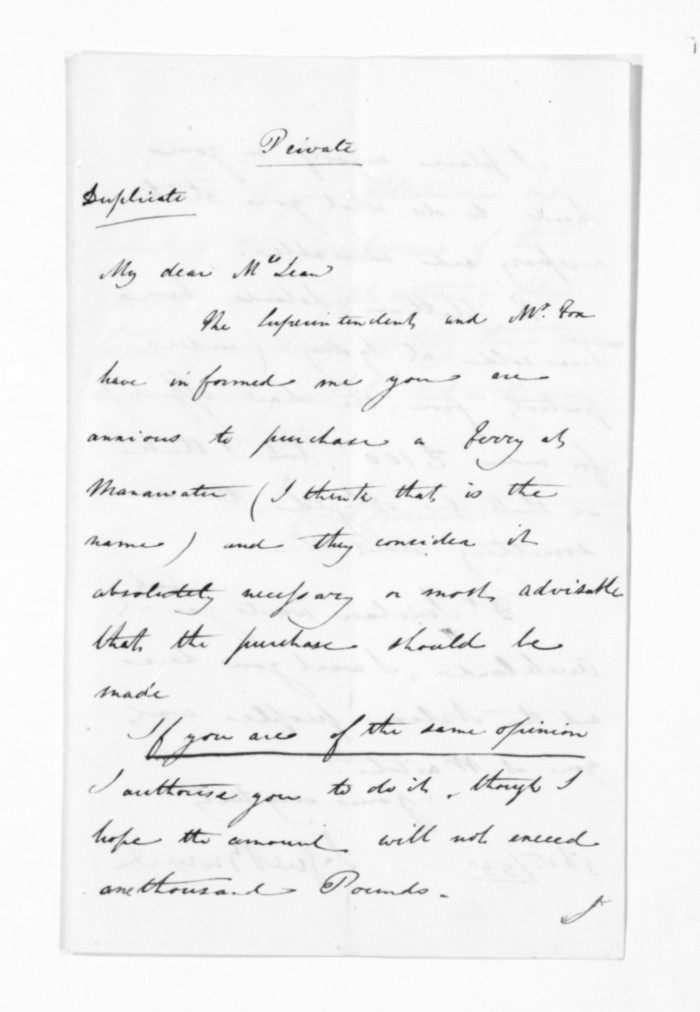 Private
Duplicate
My dear McLean
The Superintendent and Mr. Fox
have informed me you are
anxious to purchase a Ferry at
Manawatu (I think that is the
name) and they consider it
absolutely necessary or most advisable
that the purchase should be
made
If you are of the same opinion
I authorise you to do it, though I
hope the amount will not exceed
one thousand Pounds.